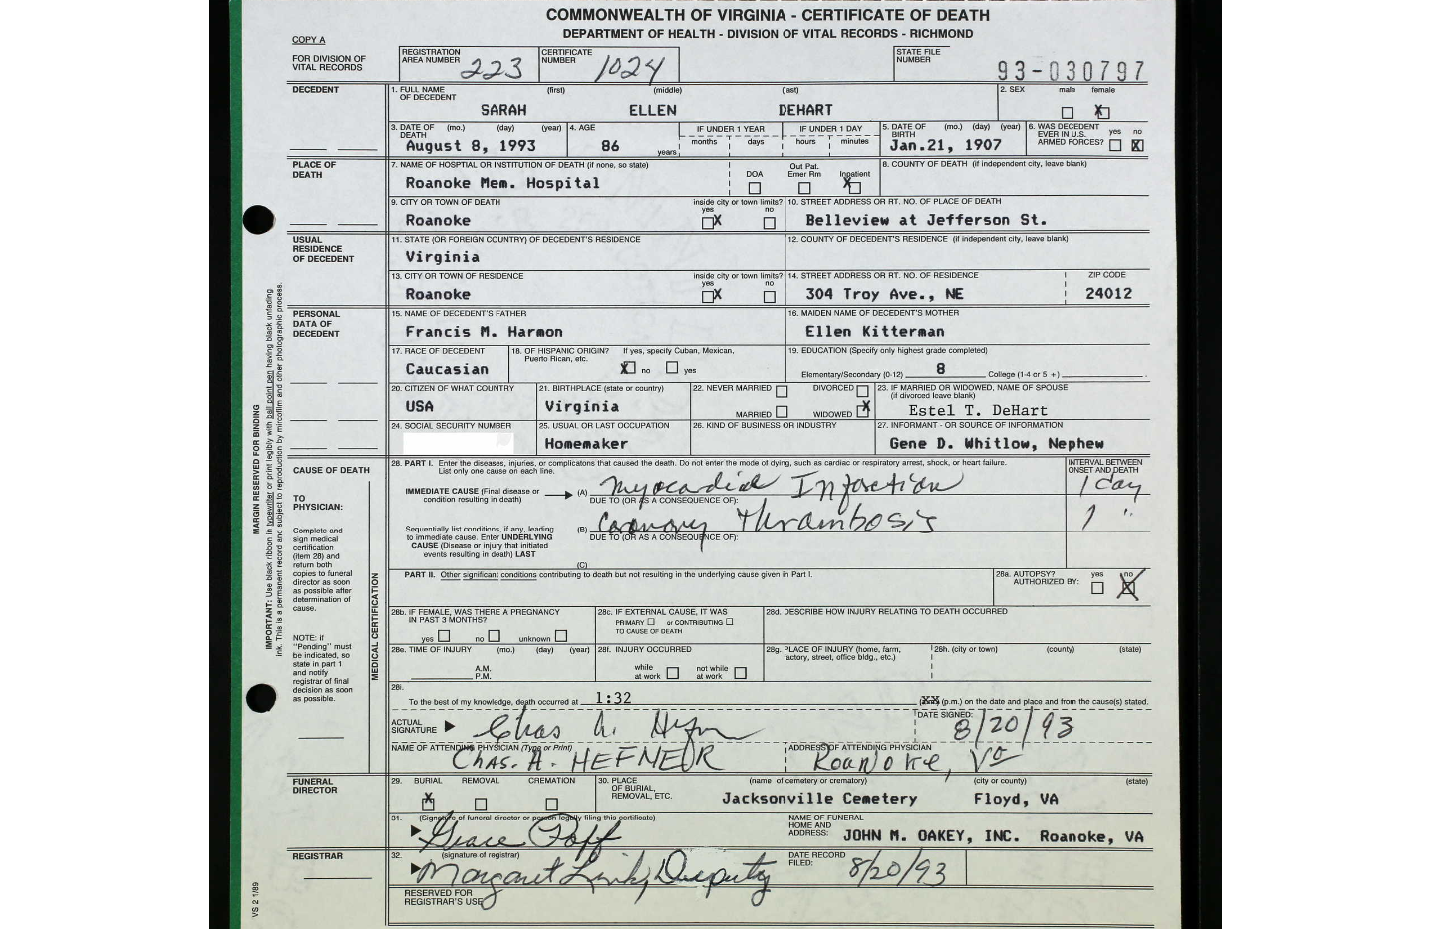 COMMONWEALTH OF VIRGINIA - CERTIFICATE OF DEATH
DEPARTMENT OF HEALTH - DIVISION OF VITAL RECORDS - RICHMOND
COPY A
FOR DIVISION OF
VITAL RECORDS
REGISTRATION
AREA NUMBER 223
CERTIFICATE
NUMBER 1024
STATE FILE
NUMBER
93-030797
DECEDENT
1. FULL NAME
OF DECEDENT (first) (middle) (ast)
SARAH ELLEN DEHART
2. SEX mals female
X
3. DATE OF (mo.) (day) (year)
DEATH
August 8, 1993
4. AGE
86 years
IF UNDER 1 YEAR
months days
IF UNDER 1 DAY
hours minutes
5. DATE OF (mo.) (day) (year)
BIRTH
Jan.21, 1907
6. WAS DECEDENT
EVER IN U.S.
ARMED FORCES? yes no
X
PLACE OF
DEATH
7. NAME OF HOSPTIAL OR INSTITUTION OF DEATH (if none, so state)
Roanoke Mem. Hospital
DOA
Out Pat.
Emer Rm
Inpatient
X
8. COUNTY OF DEATH (if independent city, leave blank)
9. CITY OR TOWN OF DEATH
Roanoke
inside city or town limits?
yes no
X
10. STREET ADDRESS OR RT. NO. OF PLACE OF DEATH
Belleview at Jefferson St.
USUAL
RESIDENCE
OF DECEDENT
11. STATE (OR FOREIGN CCUNTRY) OF DECEDENT'S RESIDENCE
Virginia
12. COUNTY OF DECEDENT'S RESIDENCE (if independent city, leave blank)
13. CITY OR TOWN OF RESIDENCE
Roanoke
inside city or town limits?
yes no
X
14. STREET ADDRESS OR RT. NO. OF RESIDENCE
304 Troy Ave., NE
ZIP CODE
24012
PERSONAL
DATA OF
DECEDENT
15. NAME OF DECEDENT'S FATHER
Francis M. Harmon
16. MAIDEN NAME OF DECEDENT'S MOTHER
Ellen Kitterman
17. RACE OF DECEDENT
Caucasian
18. OF HISPANIC ORIGIN? If yes, specify Cuban, Mexican,
Puerto Rican, etc.
X no yes
19. EDUCATION (Specify only highest grade completed)
Elementary/Secondary (0-12) 8 College (1-4 or 5 +)
20. CITIZEN OF WHAT COUNTRY
USA
21. BIRTHPLACE (state or country)
Virginia
22. NEVER MARRIED DIVORCED
MARRIED WIDOWED X
23. IF MARRIED OR WIDOWED, NAME OF SPOUSE
(if divorced leave blank)
Estel T. DeHart
24. SOCIAL SECURITY NUMBER
25. USUAL OR LAST OCCUPATION
Homemaker
26. KIND OF BUSINESS OR INDUSTRY
27. INFORMANT - OR SOURCE OF INFORMATION
Gene D. Whitlow, Nephew
CAUSE OF DEATH
TO
PHYSICIAN:
Complete and
sign medical
certification
(item 28) and
return both
copies to funeral
director as soon
as possible after
determination of
cause.
NOTE: if
"Pending" must
be indicated, so
state in part 1
and notify
registrar of final
decision as soon
as possible.
MEDICAL CERTIFICATION
28. PART I. Enter the diseases, injuries, or complicatons that caused the death. Do not enter the mode of dying, such as cardiac or respiratory arrest, shock, or heart failure.
List only one cause on each line.
INTERVAL BETWEEN
ONSET AND DEATH
IMMEDIATE CAUSE (Final disease or
condition resulting in death)
(A) Myocardial Infarction 1 day
DUE TO (OR AS A CONSEQUENCE OF):
Sequentially list conditions, if any, leading
to immediate cause. Enter UNDERLYING
CAUSE (Disease or injury that initiated
events resulting in death) LAST
(B) Coronary Thrombosis 1 "
DUE TO (OR AS A CONSEQUENCE OF):
(C)
PART II. Other significant conditions contributing to death but not resulting in the underlying cause given in Part I.
28a. AUTOPSY? yes no
AUTHORIZED BY: X
28b. IF FEMALE, WAS THERE A PREGNANCY
IN PAST 3 MONTHS?
yes no unknown
28c. IF EXTERNAL CAUSE, IT WAS
PRIMARY or CONTRIBUTING
TO CAUSE OF DEATH
28d. DESCRIBE HOW INJURY RELATING TO DEATH OCCURRED
28e. TIME OF INJURY (mo.) (day) (year)
A.M.
P.M.
28f. INJURY OCCURRED
while
at work
not while
at work
28g. PLACE OF INJURY (home, farm,
actory, street, office bldg., etc.)
28h. (city or town) (county) (state)
28i.
To the best of my knowledge, death occurred at 1:32 (XX) (p.m.) on the date and place and from the cause(s) stated.
ACTUAL
SIGNATURE Chas A. Hefner
DATE SIGNED: 8/20/93
NAME OF ATTENDING PHYSICIAN (Type or Print)
CHAS. A. HEFNER
ADDRESS OF ATTENDING PHYSICIAN
Roanoke, Va
FUNERAL
DIRECTOR
29. BURIAL REMOVAL CREMATION
X
30. PLACE
OF BURIAL,
REMOVAL, ETC.
(name of cemetery or crematory) (city or county) (state)
Jacksonville Cemetery Floyd, VA
31. (Signature of funeral director or person legally filing this certificate)
Grace Poff
NAME OF FUNERAL
HOME AND
ADDRESS: JOHN M. OAKEY, INC. Roanoke, VA
REGISTRAR
32. (signature of registrar)
Margaret Link, Deputy
DATE RECORD
FILED: 8/20/93
RESERVED FOR
REGISTRAR'S USE
MARGIN RESERVED FOR BINDING
IMPORTANT: Use black ribbon in typewriter or print legibly with ball point pen having black unfading
ink. This is a permanent record and subject to reproduction by mircofilm and other photographic process.
VS 2 1/89